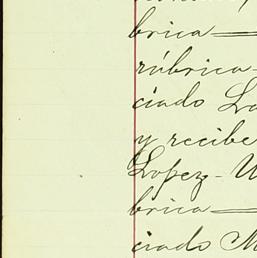 brica—
rúbrica-
ciado Lo
y recibe
Lopez-
brica—
ciado M